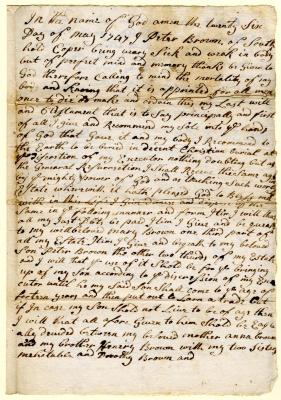 In the name of God amen the twenty Six
Day of may 1747 I Peter Brown of South
hold Cooper being weary Sick and weak in body
but of perfect mind and memory thanks be given to
God therefore Calling to mind the mortality of my
body and Knowing that it is appointed for all men
once to die do make and ordain this my Last will
and Testament that is to Say principaly and first
of all I Give and Recommend my Sol into ye hands
of God that Gave it and my body I Recommend to
the Earth to be buried in decent Christian burial at
ye discretion of my Executor nothing doubting but at
the General Resurrection I Shall Receive the Same again
by ye mighty Power of God and as touching Such worldly
Estate wherewith it hath pleased God to Bless me
with in this Life I Give and dispose of the
Same in ye folowing manner and form Item I will that
all my Just Debts be paid Item I Give and bequeath
to my well beloved mary Brown one third part of
all my Estate Item I Give and bequeath to my beloved
Son Peter Brown the other two thirds of my Estate
and I will that ye use of it Shall be for ye bringing
up of my Son acording to ye discression of my Exe
cutor until he my Said Son Shall Come to ye age of
forteen years and then put out to Learn a trade but
if in Case my Son Shold not Live to be of age then
I will that all afore Given to him Should be Equa
ally devided between my beloved mother anna brown
and my brother Henery Brown with my two Sisters
mehitable and Dorothy Brown and